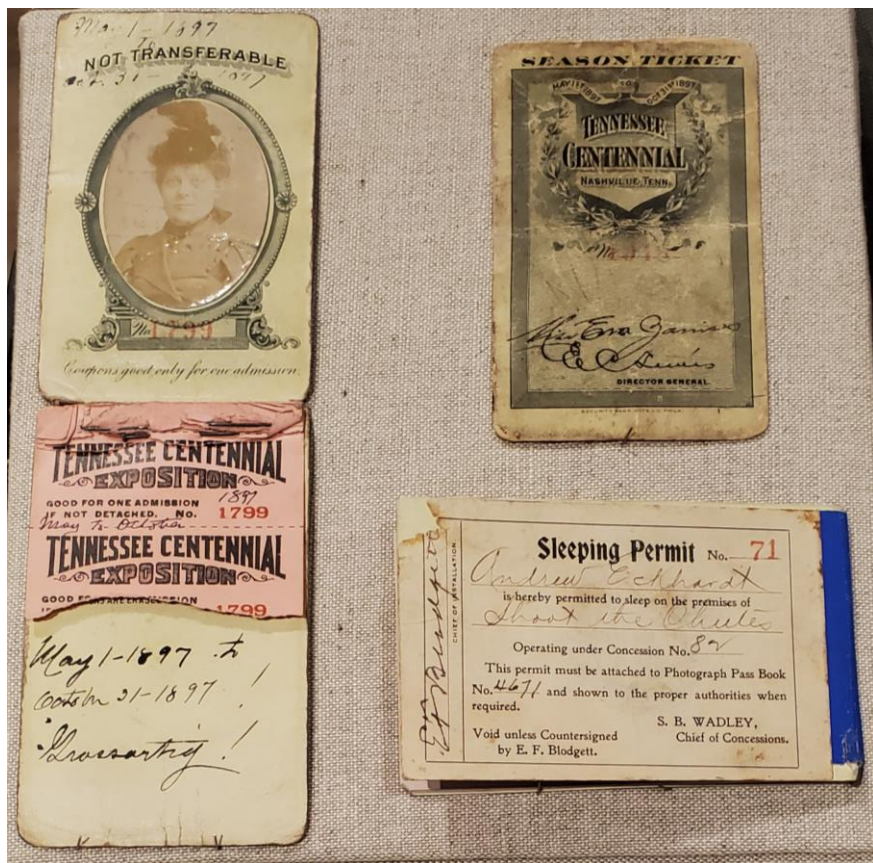 May 1-1897
To
NOT TRANSFERABLE
Oct. 31- 1897
No. 1799
Coupons good only for one admission.
TENNESSEE CENTENNIAL
EXPOSITION
1897
GOOD FOR ONE ADMISSION
IF NOT DETACHED. No. 1799
May To October
TENNESSEE CENTENNIAL
EXPOSITION
GOOD FOR ONE ADMISSION
1799
May 1-1897 to
October 31-1897 !
"Grossartig !
SEASON TICKET
MAY 1ST 1897 TO OCT 31ST 1897
TENNESSEE
CENTENNIAL
NASHVILLE TENN.
No.
Miss Eva
E C Lewis
DIRECTOR GENERAL.
CHIEF OF INSTALLATION
Sleeping Permit No. 71
Andrew Eckhardt
is hereby permitted to sleep on the premises of
Shoot the Chutes
Operating under Concession No. 82
This permit must be attached to Photograph Pass Book
No. 4671 and shown to the proper authorities when
required.
S. B. WADLEY,
Chief of Concessions.
Void unless Countersigned
by E. F. Blodgett.
E F Blodgett